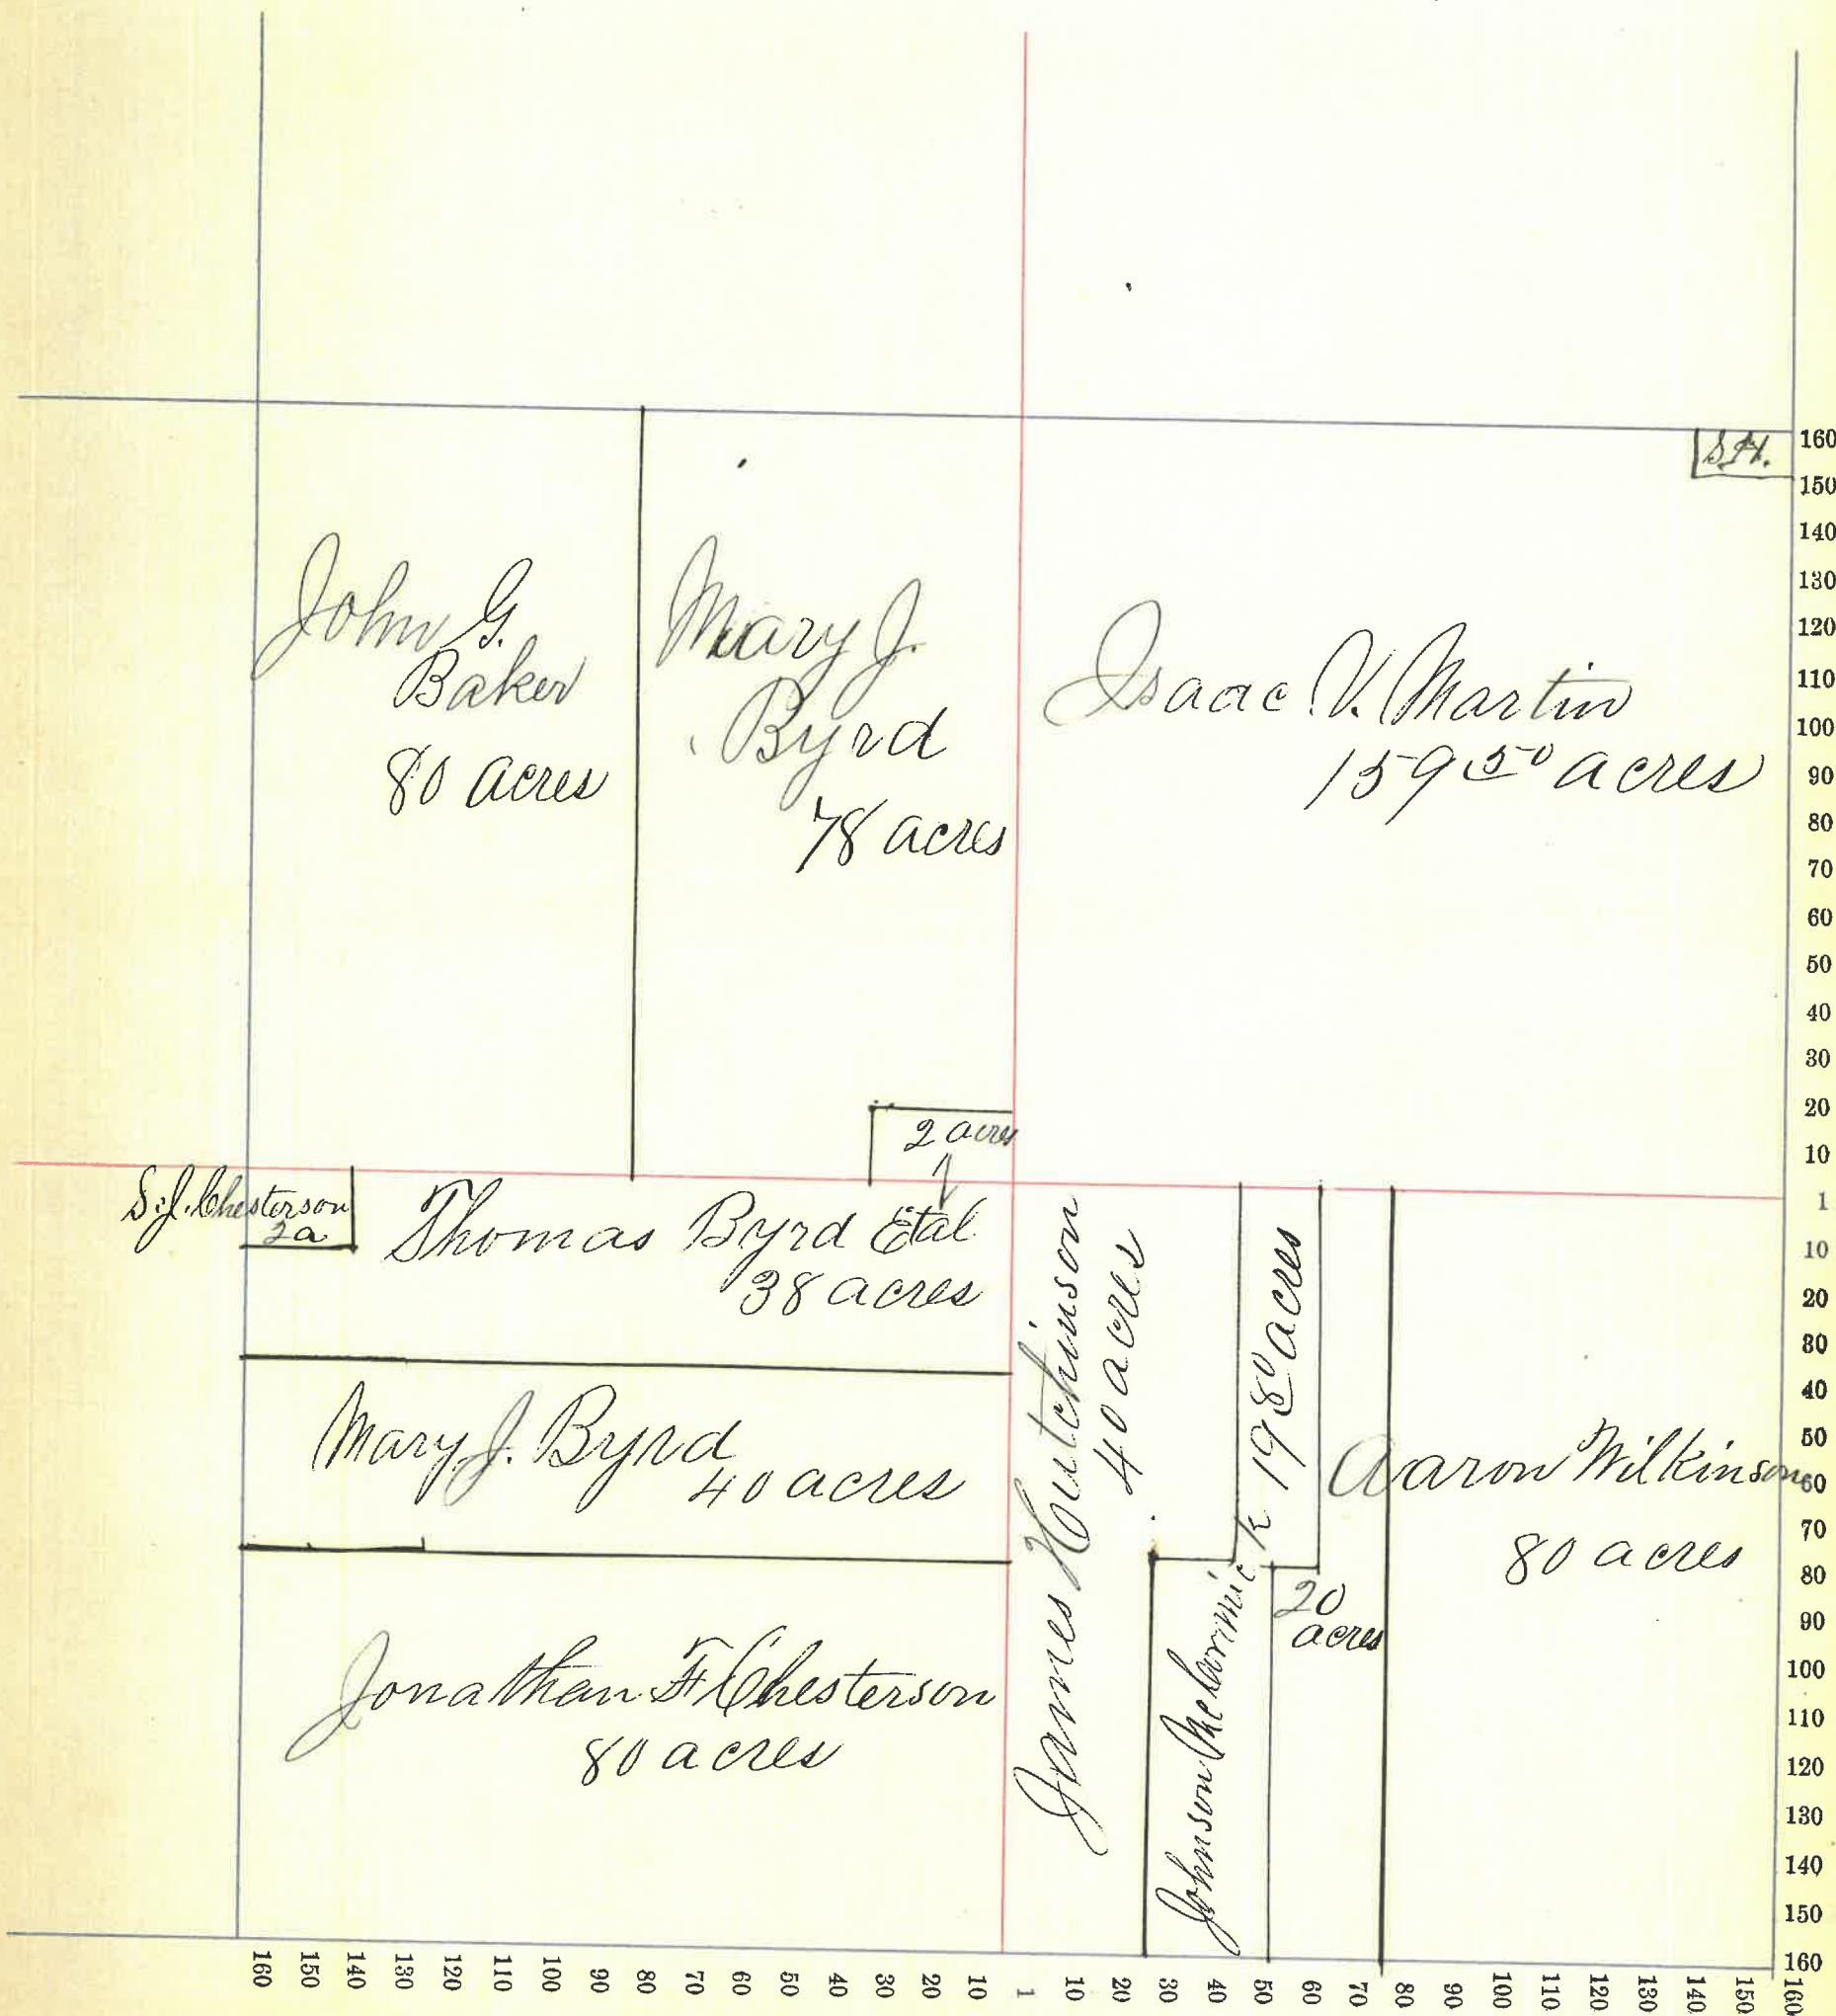 S.H.
John G.
Baker
80 acres
Mary J.
Byrd
78 acres
Isaac V. Martin
159 50 acres
2 acres
S. J. Chesterson
2a
Thomas Byrd Etal
38 acres
Mary J. Byrd
40 acres
Jonathan F Chesterson
80 acres
James Houtchinson
40 acres
Johnson McCormick 19 80 acres
20
acres
Aaron Wilkinson
80 acres
160
150
140
130
120
110
100
90
80
70
60
50
40
30
20
10
1
10
20
30
40
50
60
70
80
90
100
110
120
130
140
150
160
160 150 140 130 120 110 100 90 80 70 60 50 40 30 20 10 1 10 20 30 40 50 60 70 80 90 100 110 120 130 140 150 160